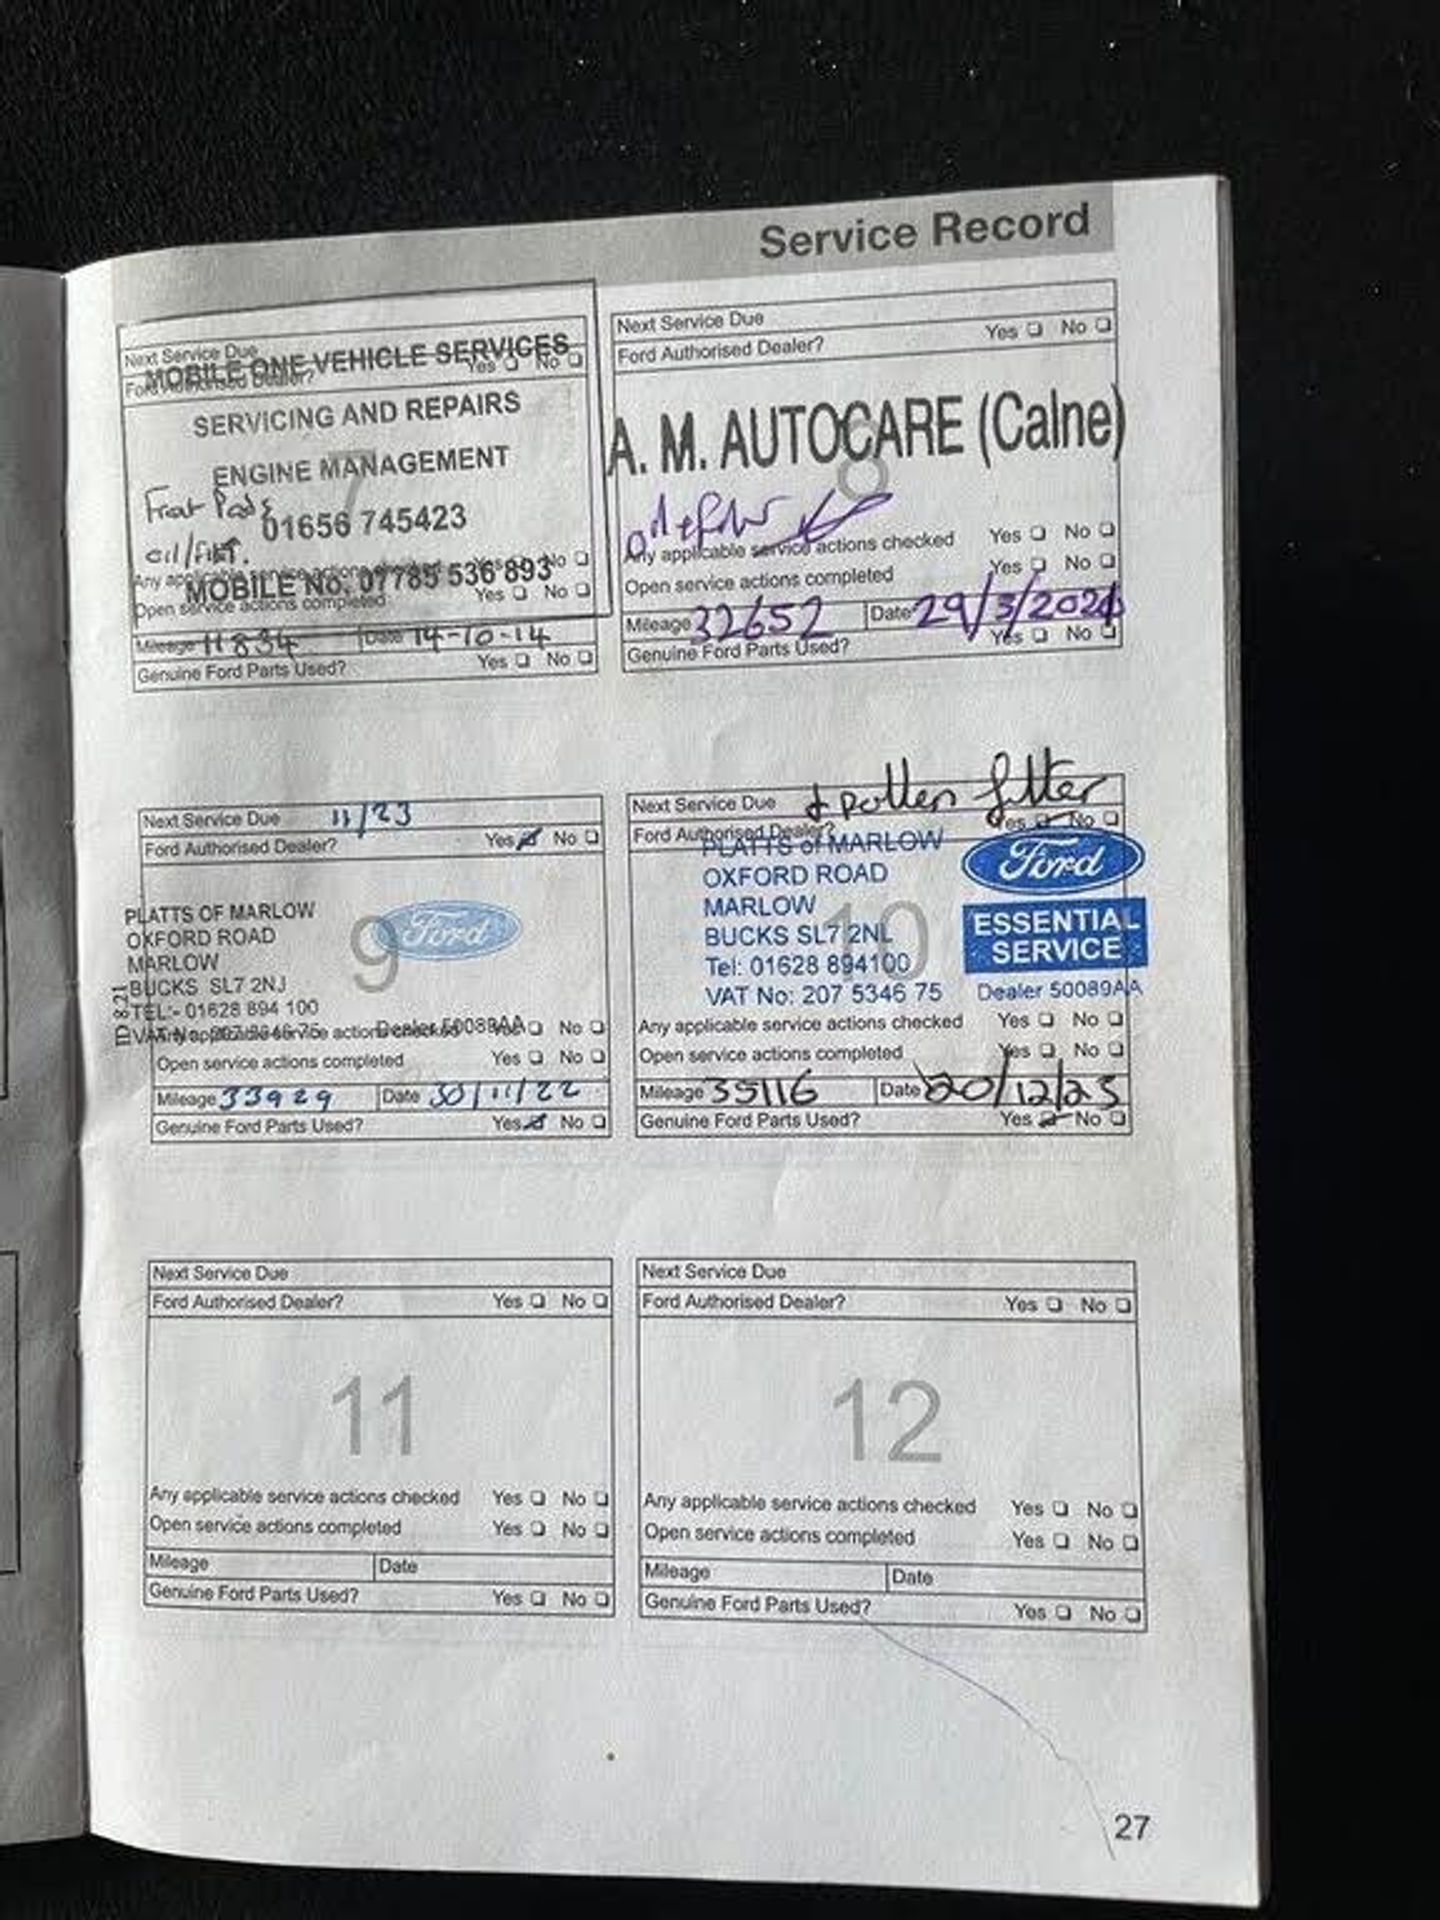 Service Record
Next Service Due
MOBILE ONE VEHICLE SERVICES
Ford Authorised Dealer? Yes No
SERVICING AND REPAIRS
ENGINE MANAGEMENT
7
Front Pads
01656 745423
oil/filt.
Any applicable service actions checked Yes No
MOBILE No. 07785 536 893
Open service actions completed Yes No
Mileage 11834 Date 14-10-14
Genuine Ford Parts Used? Yes No
Next Service Due
Ford Authorised Dealer? Yes No
A. M. AUTOCARE (Calne)
8
Any applicable service actions checked Yes No
Open service actions completed Yes No
Mileage 32652 Date 29/3/2021
Genuine Ford Parts Used? Yes No
Next Service Due 11/23
Ford Authorised Dealer? Yes No
9
Ford
PLATTS OF MARLOW
OXFORD ROAD
MARLOW
BUCKS SL7 2NJ
TEL:- 01628 894 100
Dealer 50089AA
ID 8.21
Any applicable service actions checked Yes No
Open service actions completed Yes No
Mileage 33929 Date 30/11/22
Genuine Ford Parts Used? Yes No
Next Service Due + pollen filter
Ford Authorised Dealer? Yes No
PLATTS of MARLOW
OXFORD ROAD
MARLOW
BUCKS SL7 2NL
Tel: 01628 894100
VAT No: 207 5346 75
10
Ford
ESSENTIAL
SERVICE
Dealer 50089AA
Any applicable service actions checked Yes No
Open service actions completed Yes No
Mileage 35116 Date 20/12/23
Genuine Ford Parts Used? Yes No
Next Service Due
Ford Authorised Dealer? Yes No
11
Any applicable service actions checked Yes No
Open service actions completed Yes No
Mileage Date
Genuine Ford Parts Used? Yes No
Next Service Due
Ford Authorised Dealer? Yes No
12
Any applicable service actions checked Yes No
Open service actions completed Yes No
Mileage Date
Genuine Ford Parts Used? Yes No
27